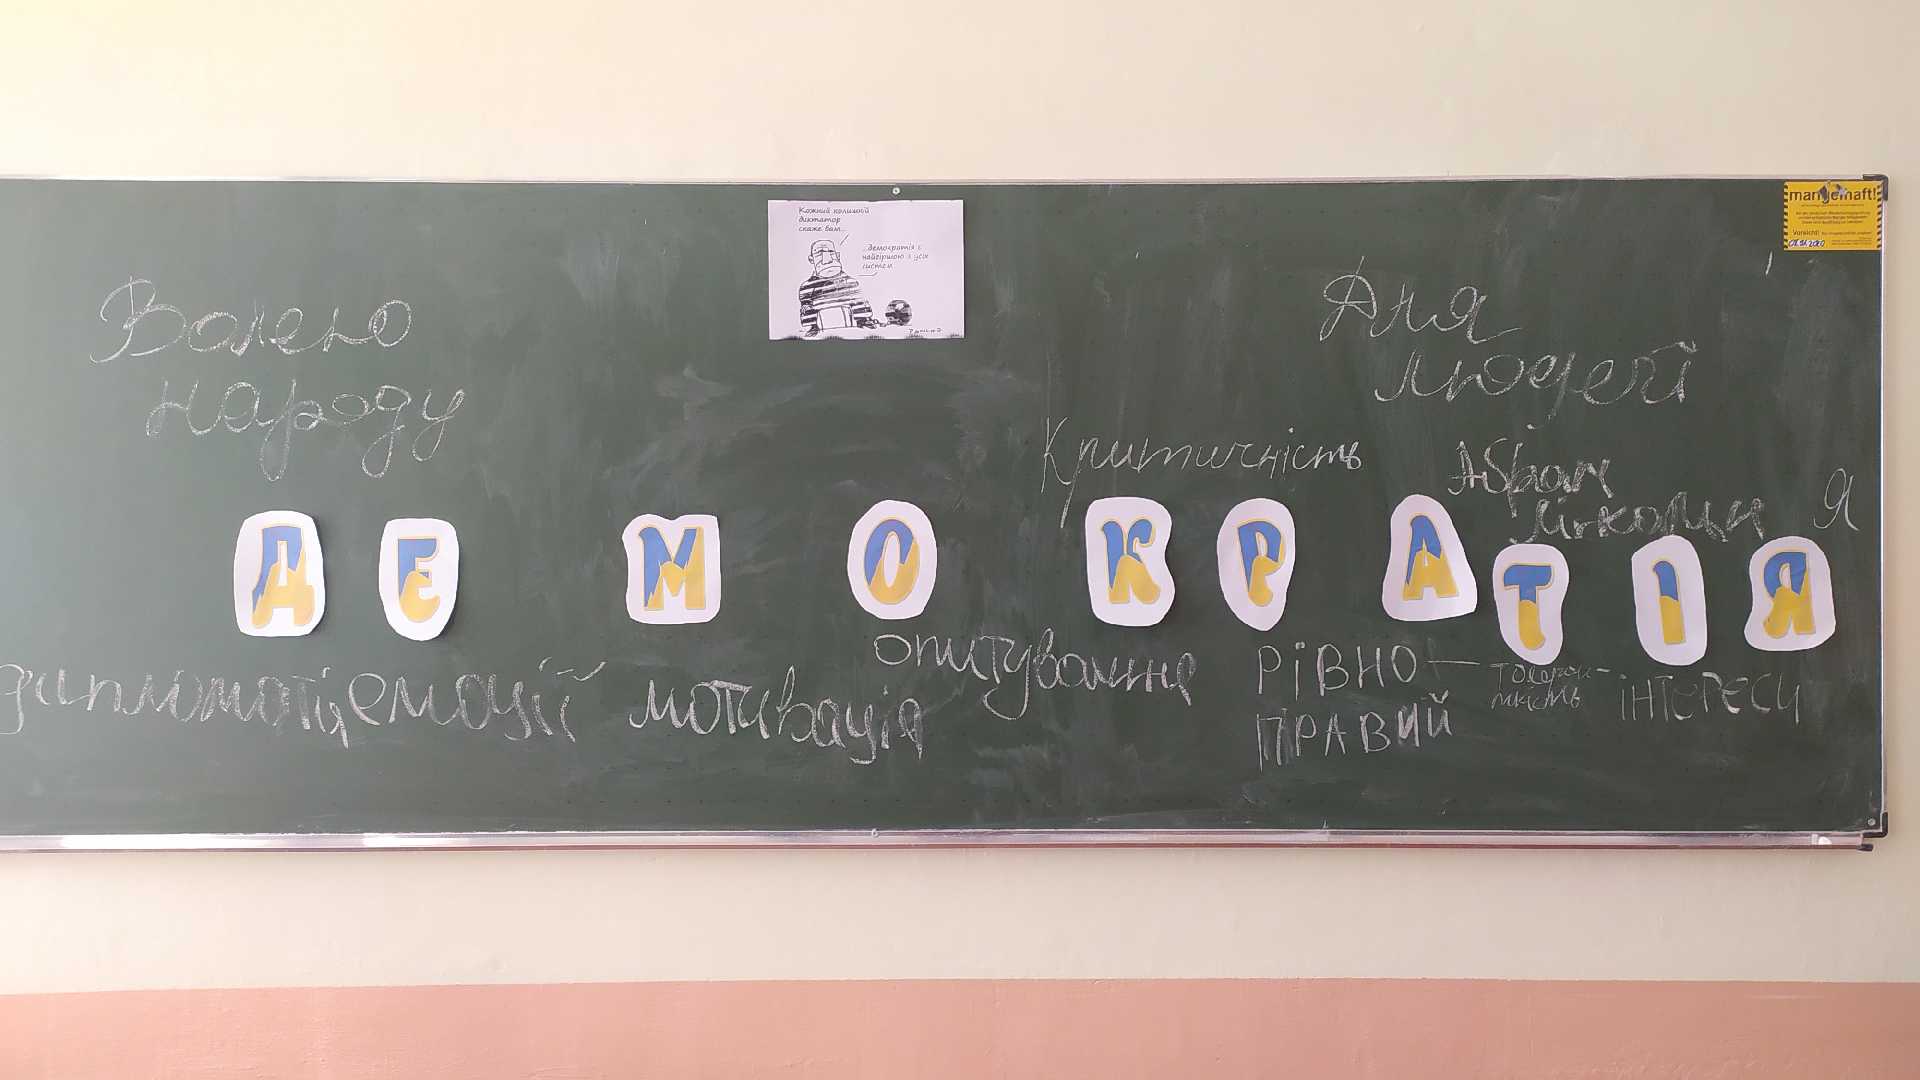 Кожний колишній
диктатор
скаже вам...
...демократія є
найгіршою з усіх
систем
mangelhaft!
Vorsicht!
Волею
народу
Для
людей
Критичність
Абрам
Лінкольн
Я
ДЕМОКРАТІЯ
дипломатія
емоції
мотивація
опитування
РІВНО-
ПРАВИЙ
толеран-
тність
ІНТЕРЕСИ